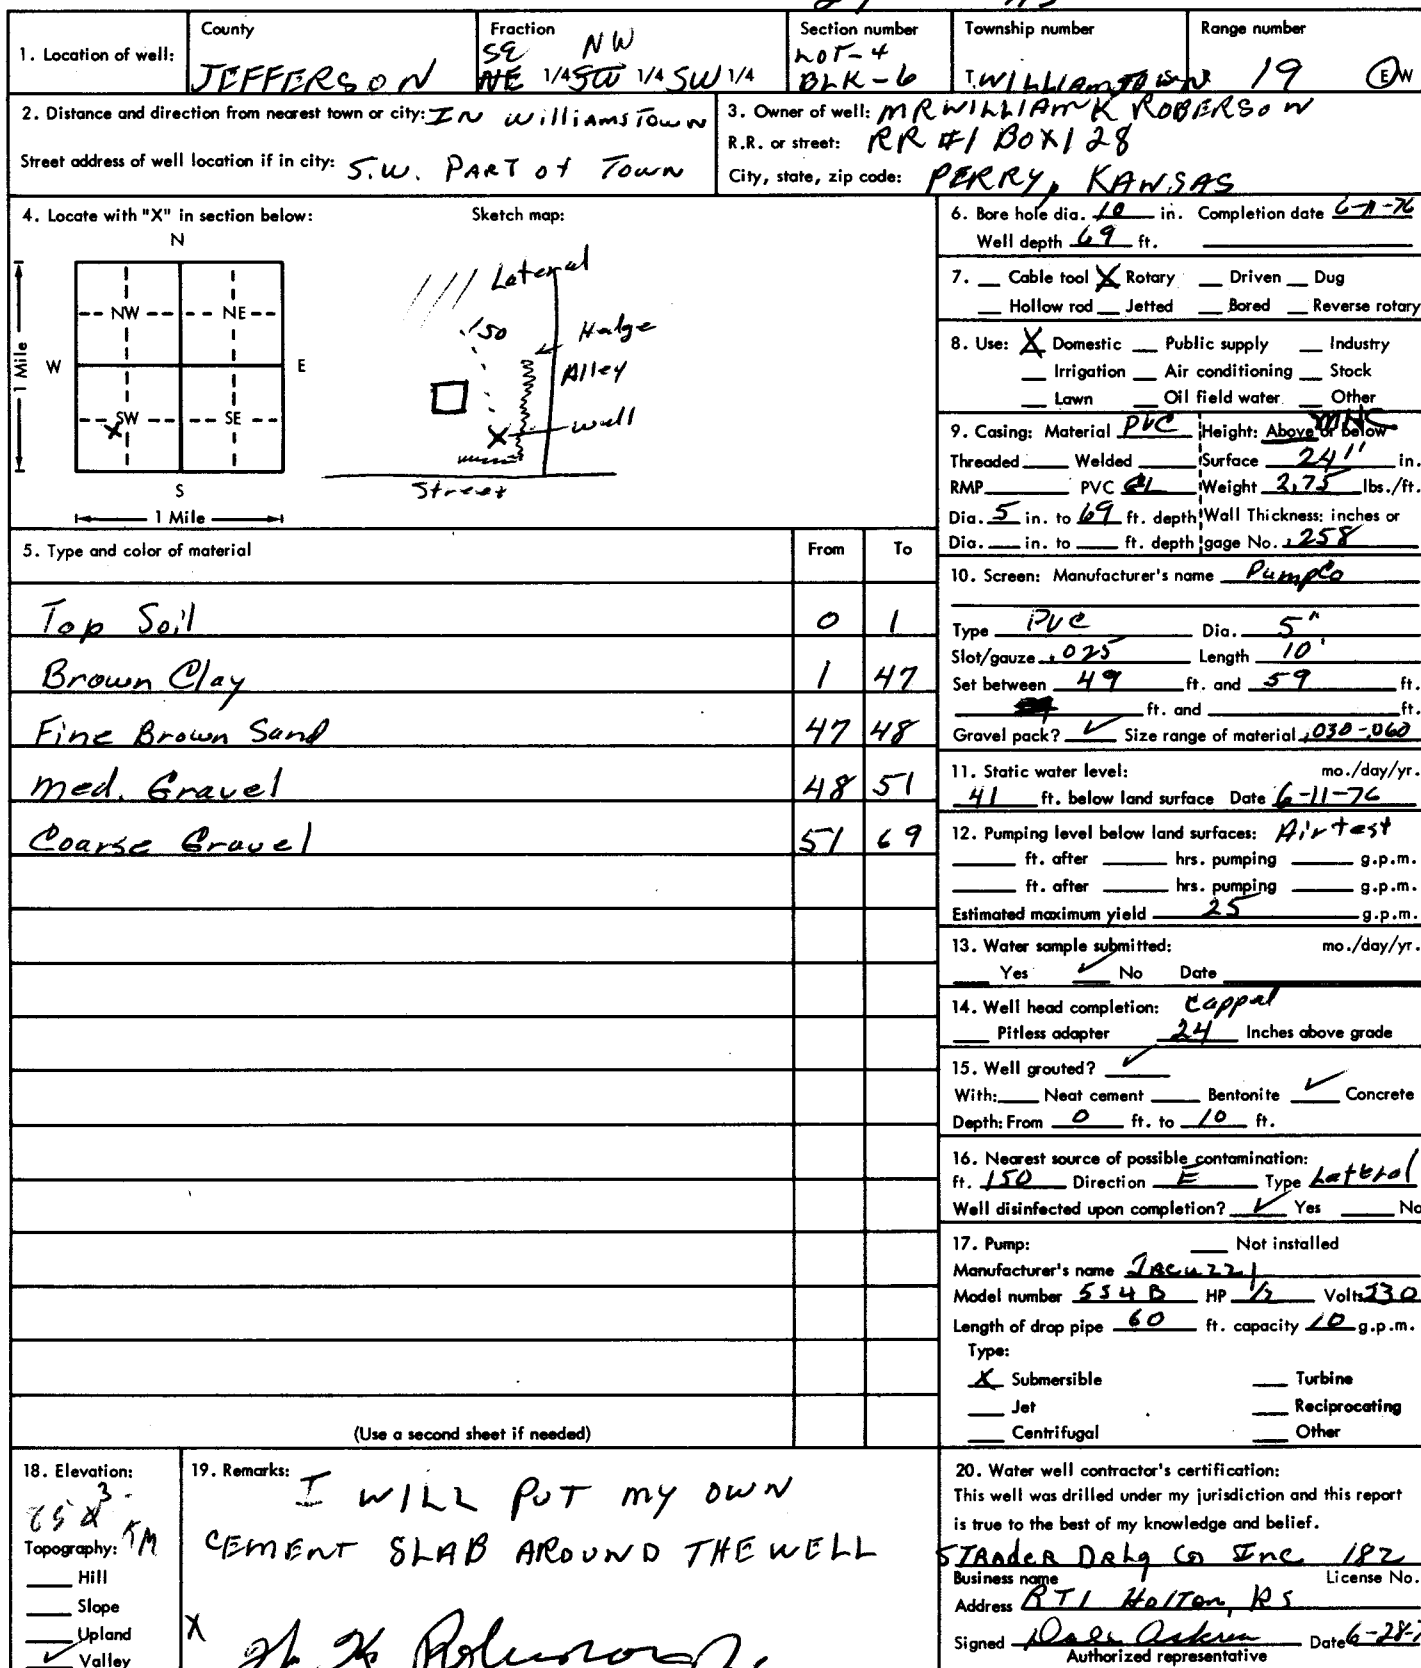 County Fraction Section number Township number Range number
1. Location of well: JEFFERSON SE NW NE 1/4 SW 1/4 SW 1/4 LOT-4 BLK-6 T. WILLIAMSTOWN 19 E W
2. Distance and direction from nearest town or city: IN WilliamsTown
Street address of well location if in city: S.W. PART of Town
3. Owner of well: MR WILLIAM K ROBERSON
R.R. or street: RR #1 BOX 128
City, state, zip code: PERRY, KANSAS
4. Locate with "X" in section below: Sketch map:
N
NW NE
W E
SW SE
X
S
1 Mile
1 Mile
Lateral
150
Hedge
Alley
X well
Street
5. Type and color of material From To
Top Soil 0 1
Brown Clay 1 47
Fine Brown Sand 47 48
med. Gravel 48 51
Coarse Gravel 51 69
(Use a second sheet if needed)
6. Bore hole dia. 10 in. Completion date 6-11-76
Well depth 69 ft.
7. __ Cable tool X Rotary __ Driven __ Dug
__ Hollow rod __ Jetted __ Bored __ Reverse rotary
8. Use: X Domestic __ Public supply __ Industry
__ Irrigation __ Air conditioning __ Stock
__ Lawn __ Oil field water __ Other
9. Casing: Material PVC Height: Above or below
Threaded ____ Welded ____ Surface 24" in.
RMP ____ PVC Weight 2.75 lbs./ft.
Dia. 5 in. to 69 ft. depth Wall Thickness: inches or
Dia. __ in. to __ ft. depth gage No. .258
10. Screen: Manufacturer's name PumpCo
Type PVC Dia. 5"
Slot/gauze .025 Length 10'
Set between 49 ft. and 59 ft.
ft. and ____ ft.
Gravel pack? ✓ Size range of material .030-.060
11. Static water level: mo./day/yr.
41 ft. below land surface Date 6-11-76
12. Pumping level below land surfaces: Air test
____ ft. after ____ hrs. pumping ____ g.p.m.
____ ft. after ____ hrs. pumping ____ g.p.m.
Estimated maximum yield 25 g.p.m.
13. Water sample submitted: mo./day/yr.
____ Yes ✓ No Date ____
14. Well head completion: Capped
____ Pitless adapter 24 Inches above grade
15. Well grouted? ✓
With: ____ Neat cement ____ Bentonite ✓ Concrete
Depth: From 0 ft. to 10 ft.
16. Nearest source of possible contamination:
ft. 150 Direction E Type Lateral
Well disinfected upon completion? ✓ Yes ____ No
17. Pump: ____ Not installed
Manufacturer's name Jacuzzi
Model number 5S4B HP 1/2 Volts 230
Length of drop pipe 60 ft. capacity 10 g.p.m.
Type:
X Submersible ____ Turbine
____ Jet ____ Reciprocating
____ Centrifugal ____ Other
18. Elevation:
Topography:
____ Hill
____ Slope
____ Upland
✓ Valley
19. Remarks: I WILL PUT MY OWN
CEMENT SLAB AROUND THE WELL
X
20. Water well contractor's certification:
This well was drilled under my jurisdiction and this report
is true to the best of my knowledge and belief.
STRADER DRLG CO Inc 182
Business name License No.
Address RT1 Holton, KS
Signed Date 6-28-7
Authorized representative